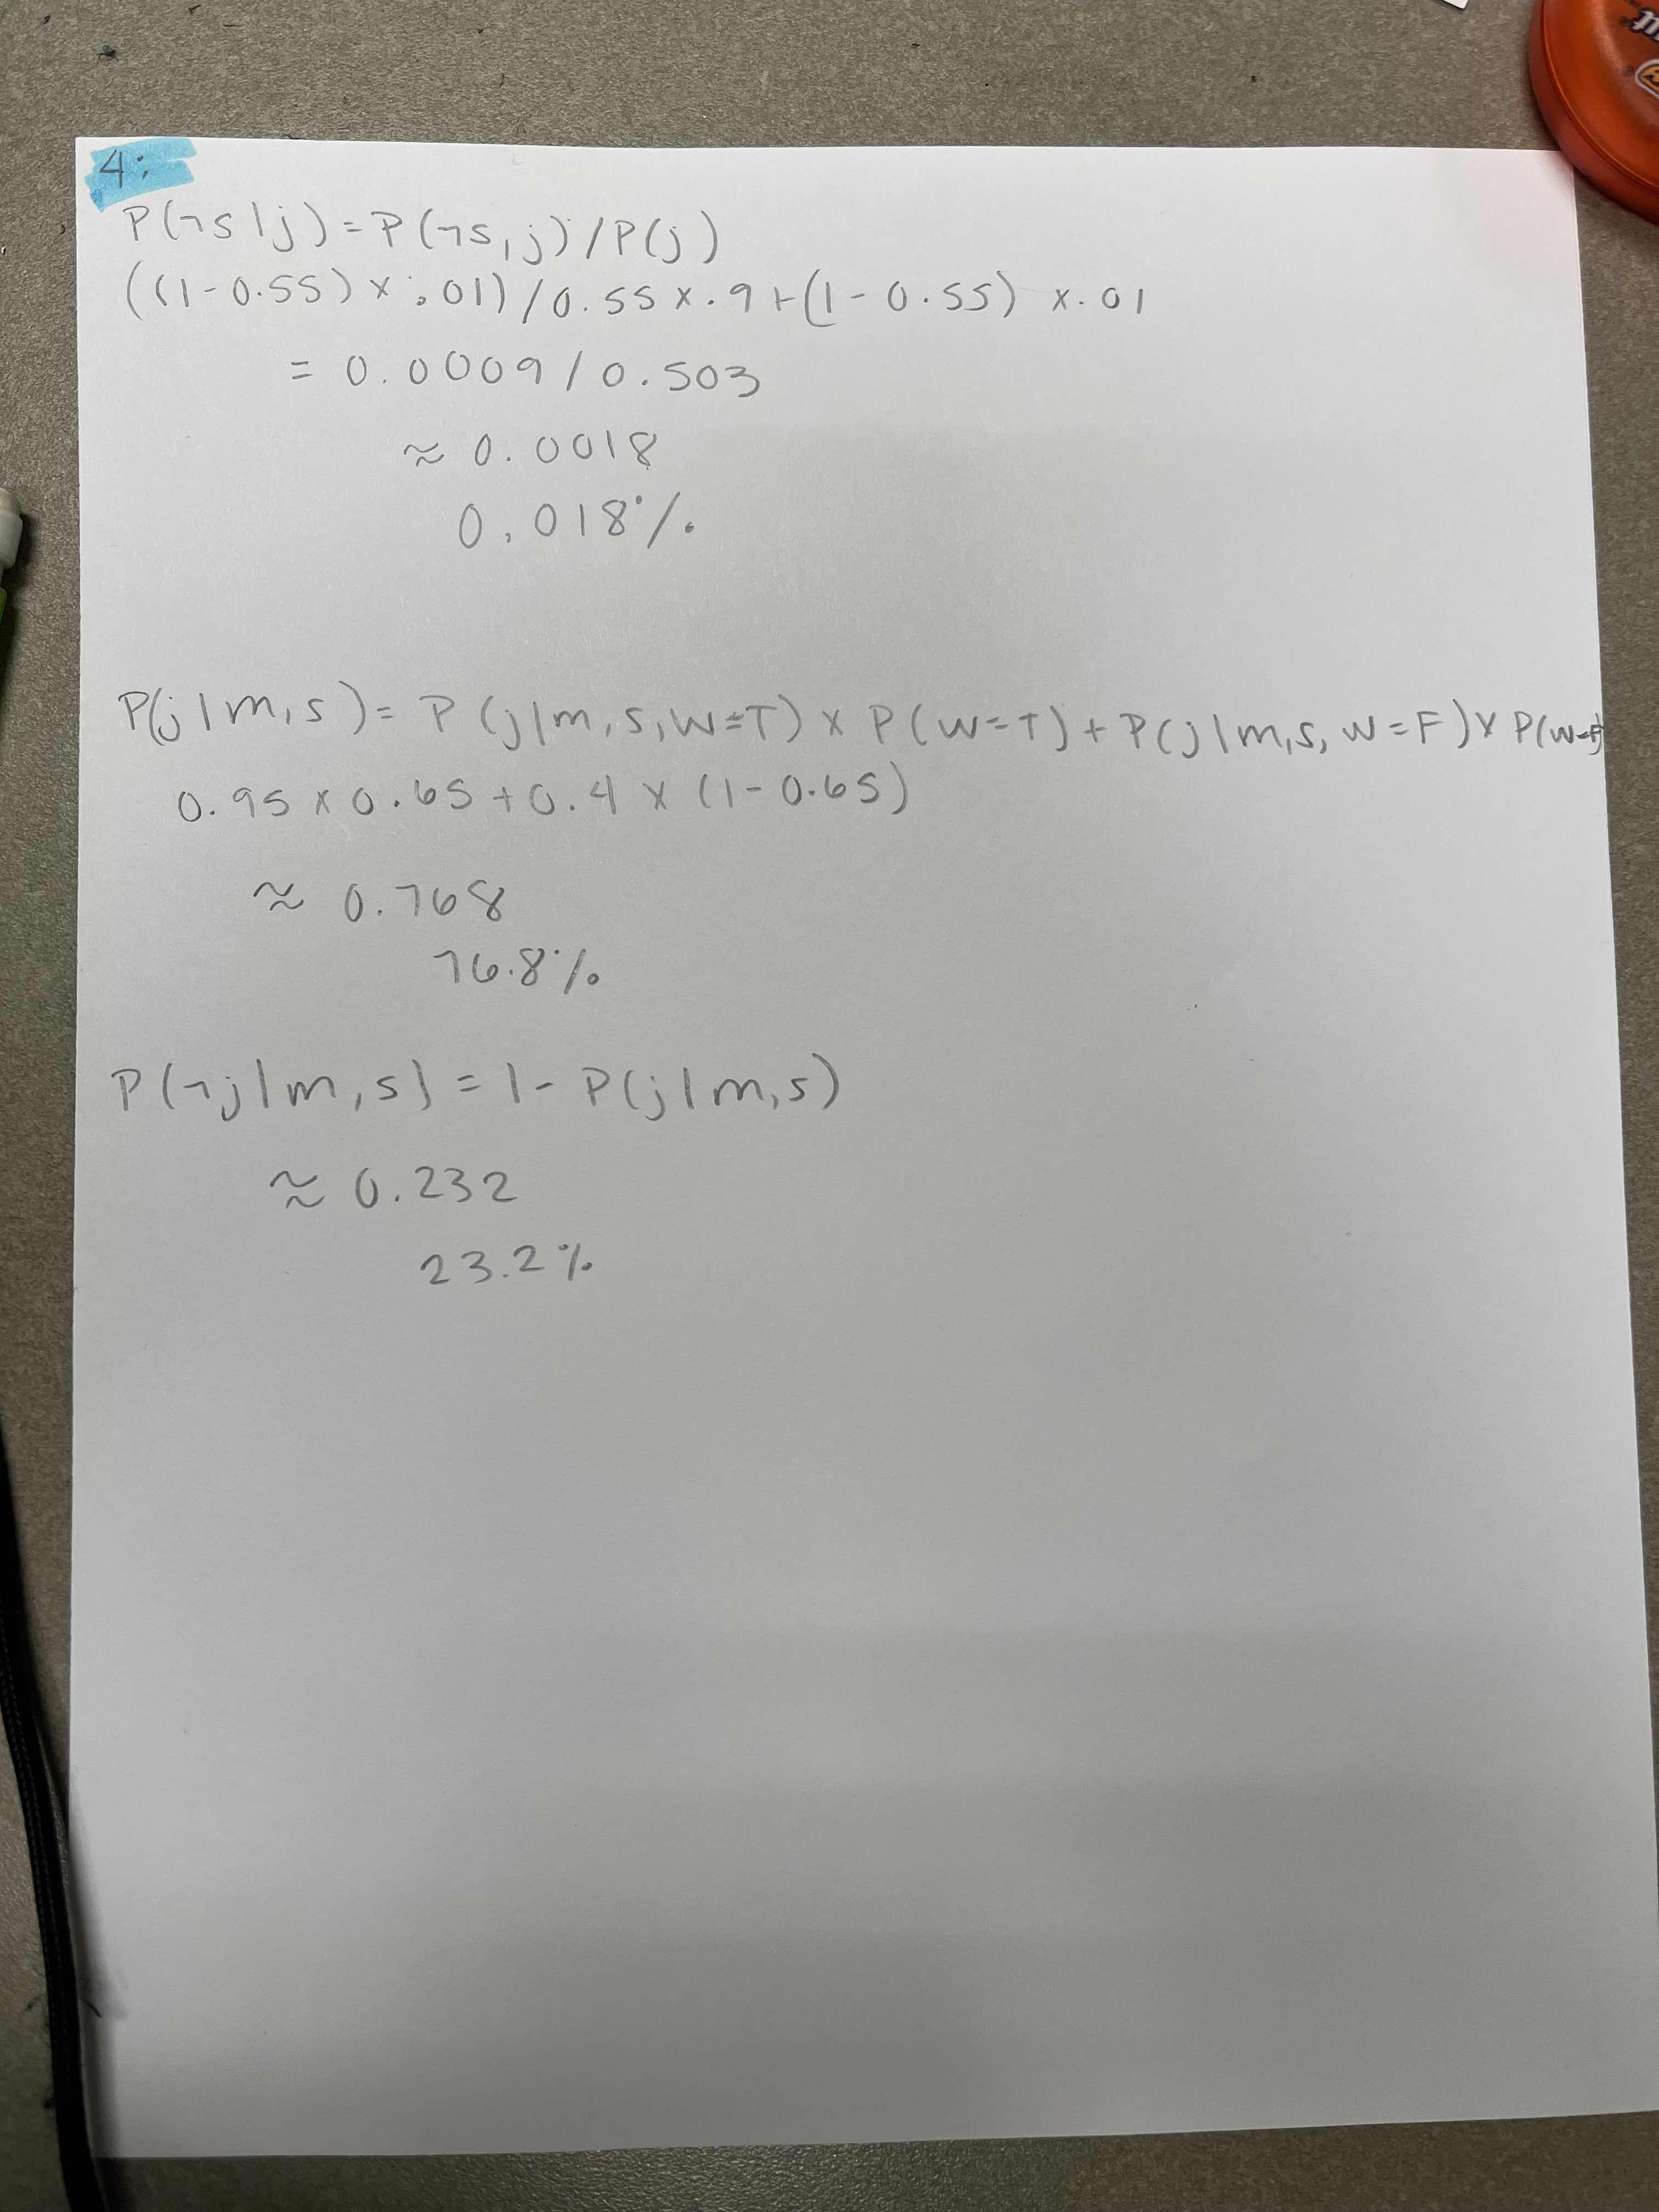 4:
P(¬s|j) = P(¬s,j)/P(j)
((1-0.55)x.01)/0.55x.9+(1-0.55) x.01
= 0.0009/0.503
≈ 0.0018
0.018%
P(j|m,s) = P(j|m,s,W=T) x P(W=T) + P(j|m,s,W=F) x P(W=F)
0.95 x 0.65 + 0.4 x (1-0.65)
≈ 0.768
76.8%
P(¬j|m,s) = 1 - P(j|m,s)
≈ 0.232
23.2%